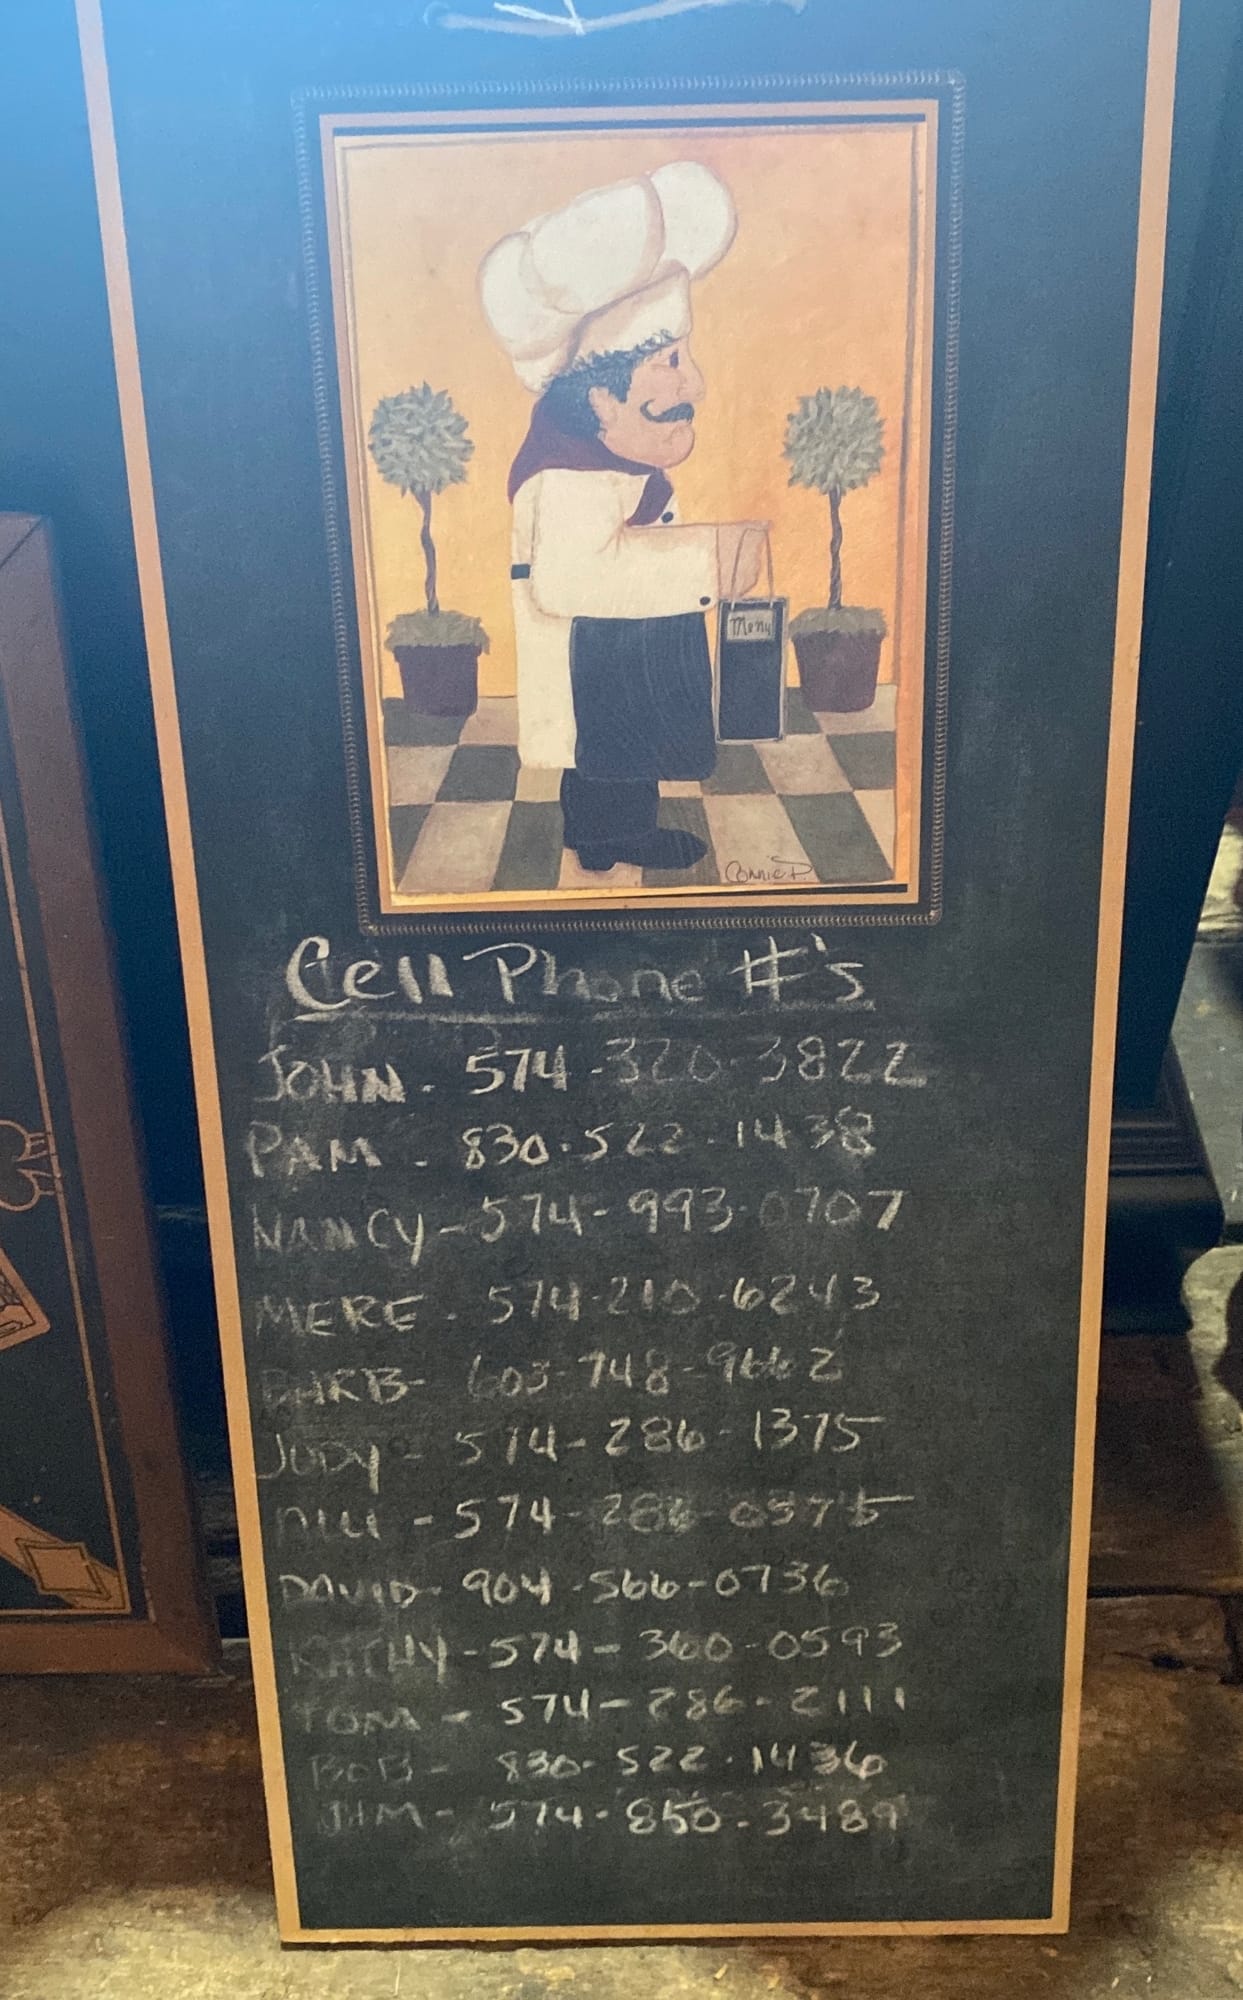 Menu
Connie P.
Cell Phone #'s
JOHN - 574-320-3822
PAM - 830-522-1438
NANCY - 574-993-0707
MERE - 574-210-6243
BARB - 603-748-9662
JUDY - 574-286-1375
- 574-286-0575
DAVID - 904-566-0736
KATHY - 574-360-0593
TOM - 574-286-2111
BOB - 830-522-1436
JIM - 574-850-3489